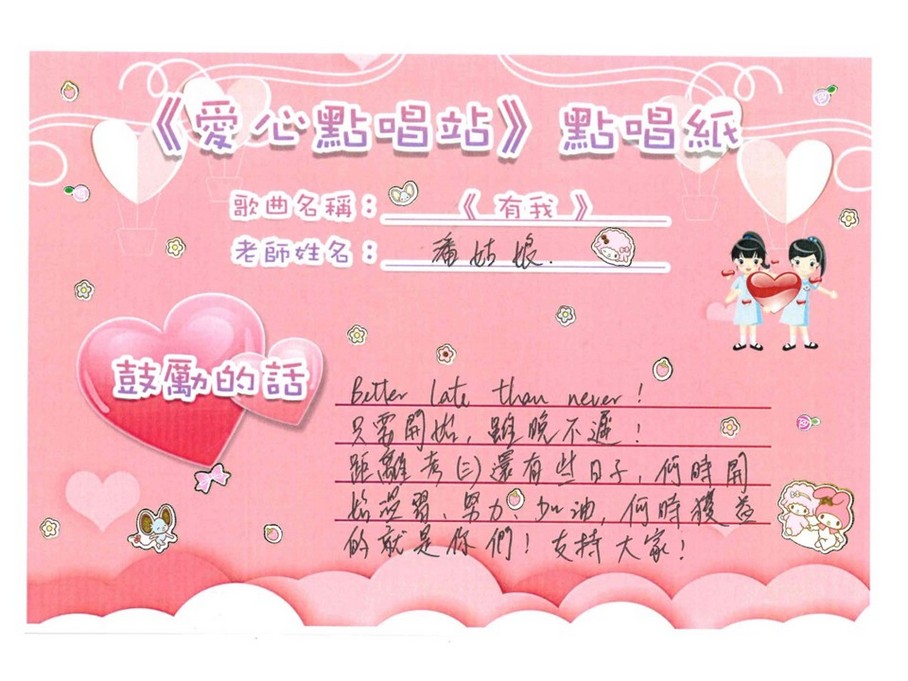 《愛心點唱站》點唱紙
歌曲名稱：《 有我 》
老師姓名：潘姑娘.
鼓勵的話
Better late than never!
只需開始，雖晚不遲！
距離考(三)還有些日子，何時開
始溫習、努力、加油，何時獲益
的就是你們！支持大家！